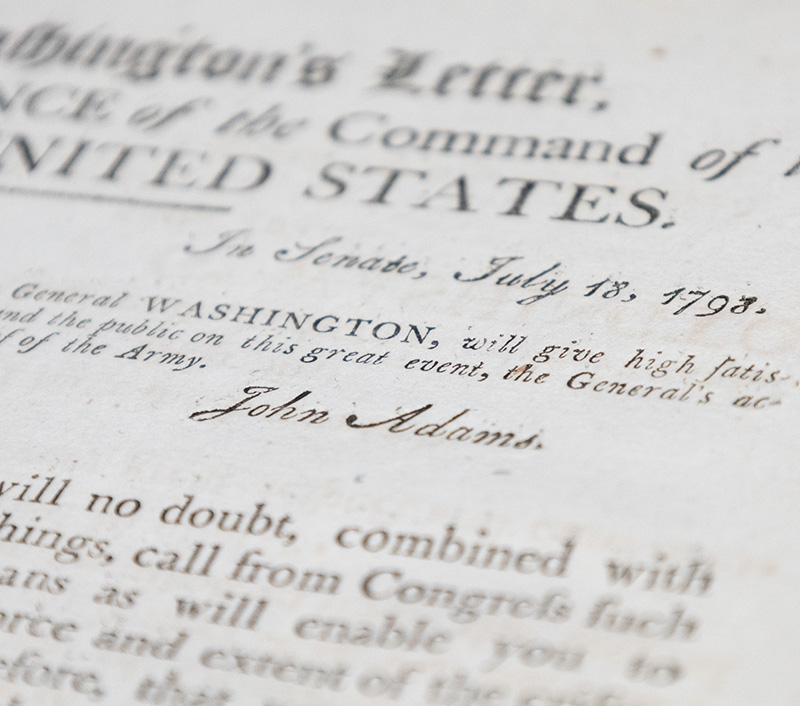 ashington's Letter,
NCE of the Command of
UNITED STATES.
In Senate, July 18, 1798.
General WASHINGTON, will give high ſatis-
and the public on this great event, the General's ac-
of the Army.
John Adams.
will no doubt, combined with
hings, call from Congreſs ſuch
ans as will enable you to
orce and extent of the
efore, that